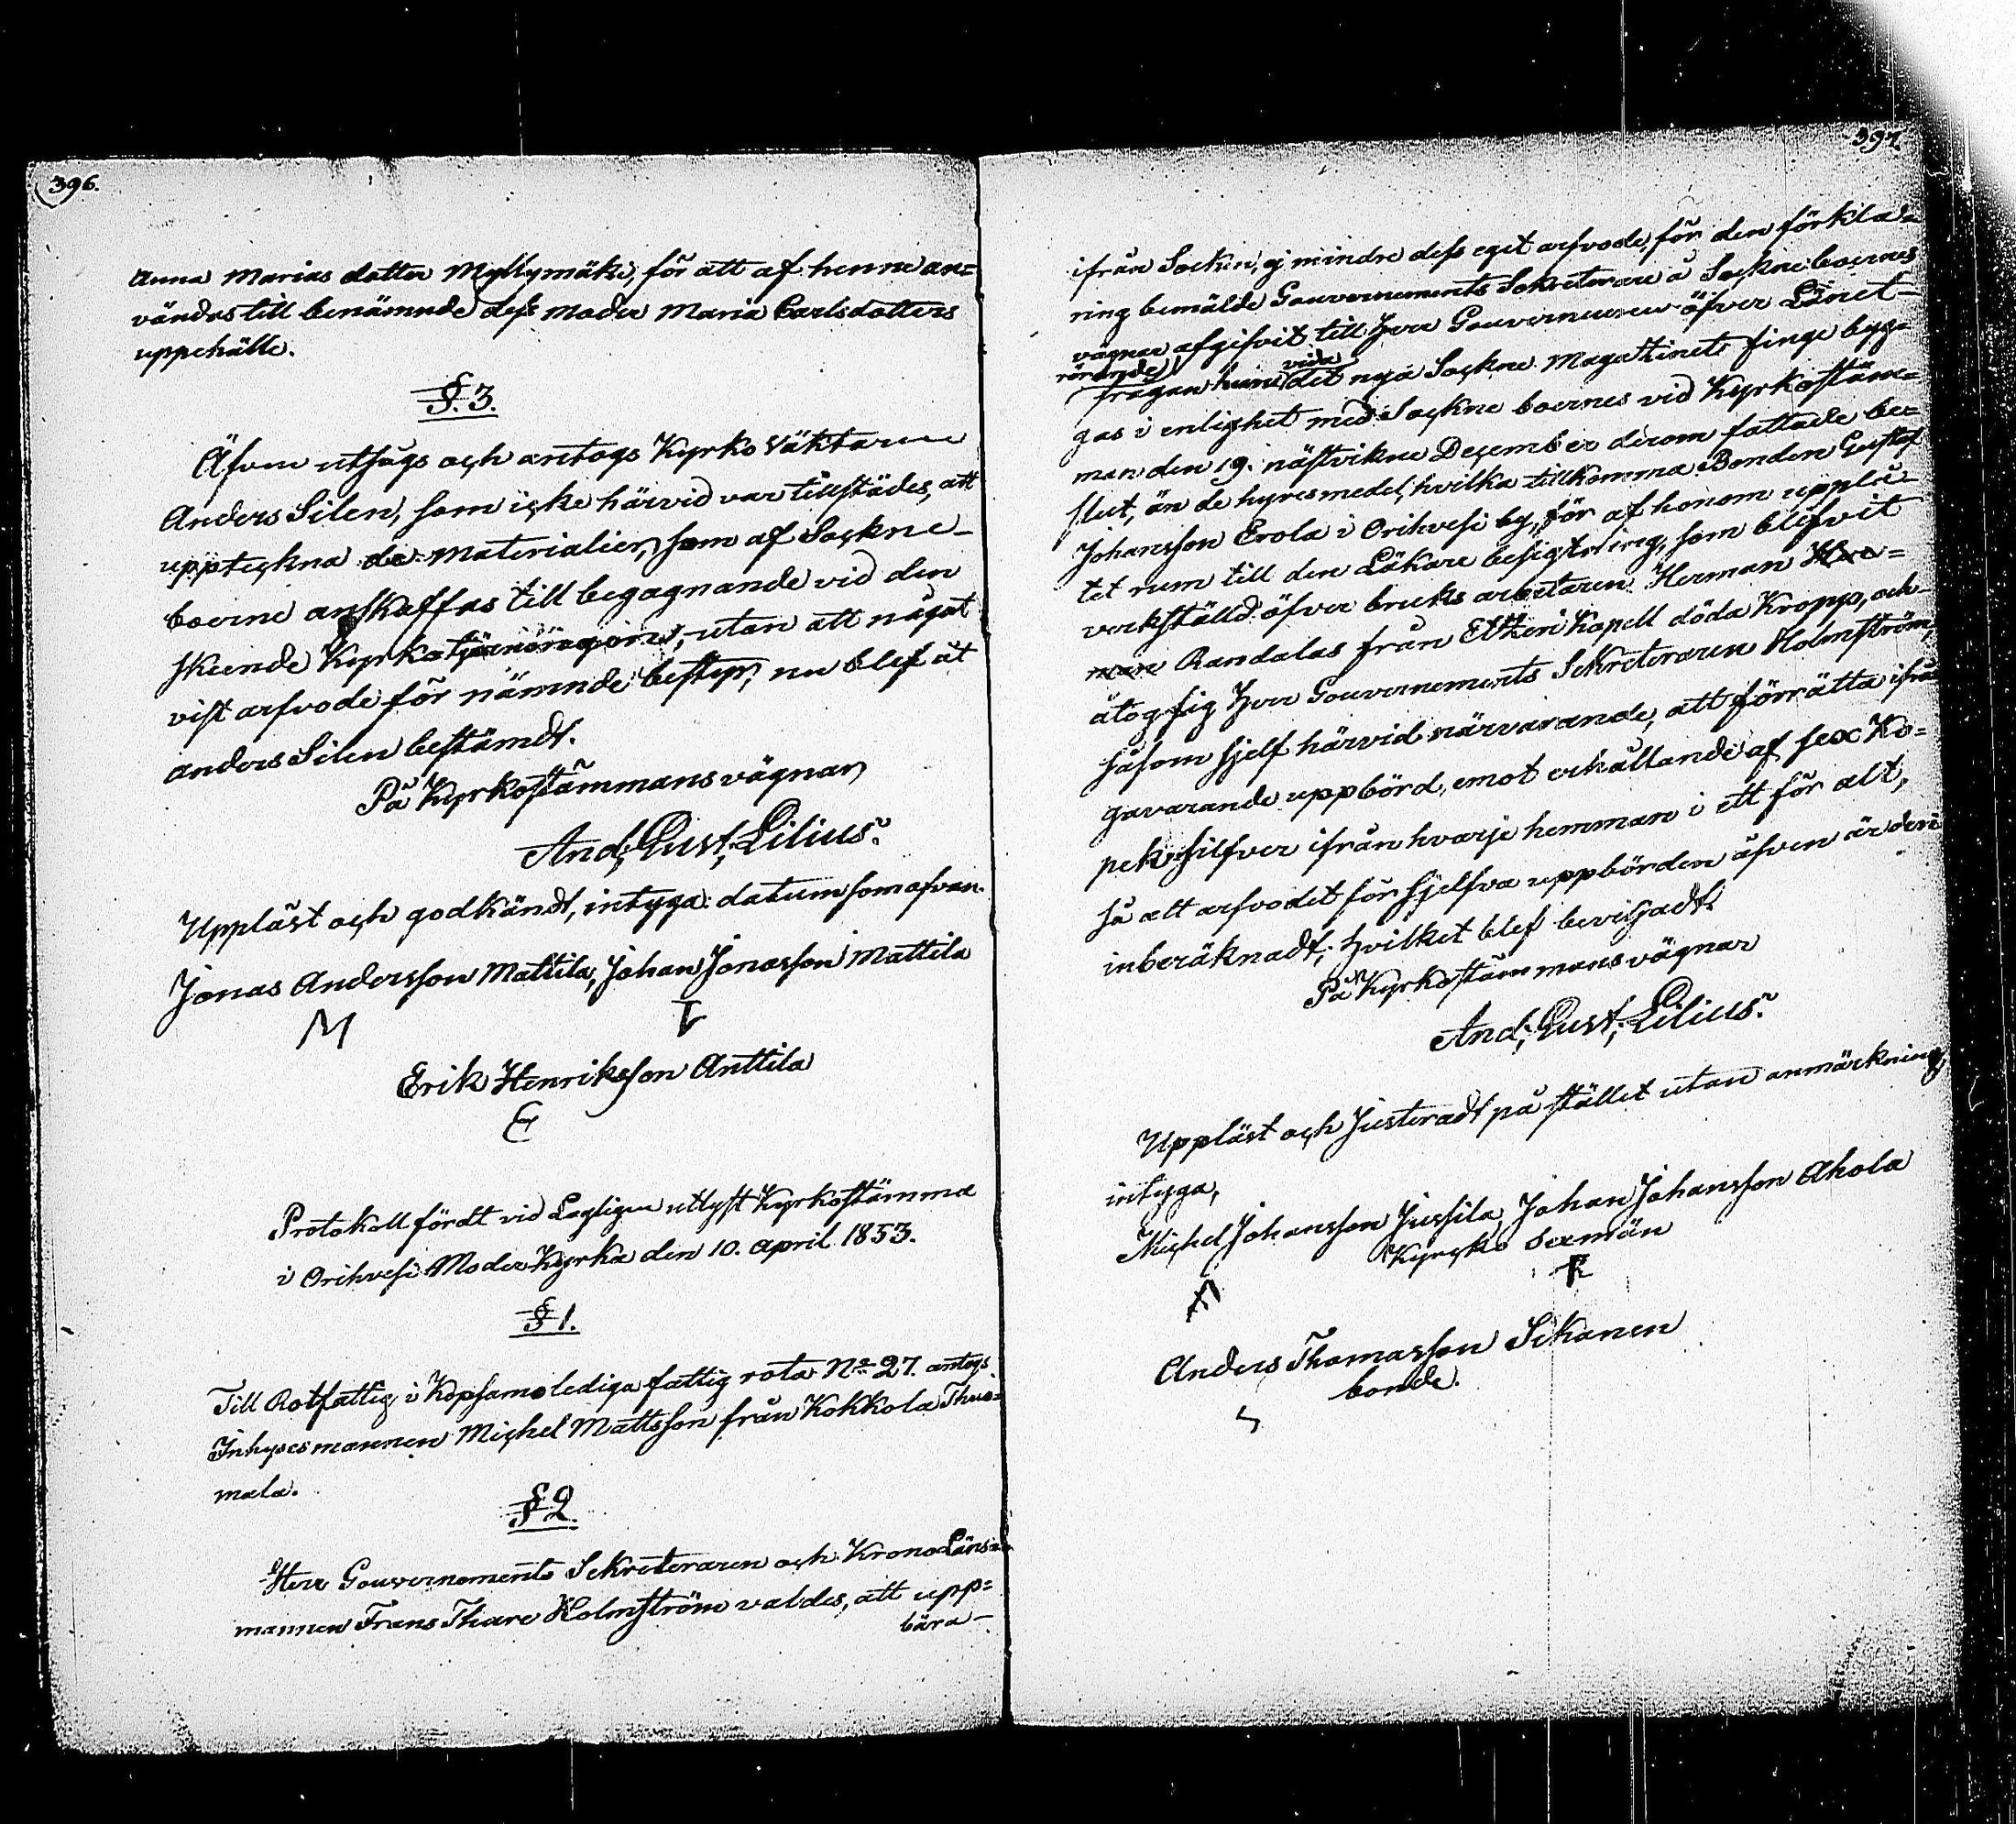 396.
Anna Marias dotter Myllymäki, för att af henne an=
vändas till benämnde dess moder Maria Carlsdotters
uppehälle.
§. 3.
Äfven utsågs och antogs Kyrko Väktaren
Anders Silen, som icke härvid var tillstädes, att
uppteckna de materialier, som af Sockne-
boerne anskaffas till begagnande vid den
skeende Kyrko utan att något
visst arfvode för nämnde bestyr, nu blef åt
Anders Silen bestämdt.
På Kyrkostämmans vägnar
And; Gust; Lilius.
Uppläst och godkändt, intyga: datum som ofvan.
Jonas Andersson Mattila, Johan Jonasson Mattila
M I
Erik Henriksson Anttila
E
Protokoll fördt vid Lagligen utlyst Kyrkostämma
i Orihvesi Moder Kyrka den 10. April 1853.
§ 1.
Till Rotfattig i Kopsamo lediga fattig rota No 27. antogs
Inhysesmannen Michel Mattsson från Kokkola Thuo=
mala.
§ 2.
Herr Gouvernements Sekreteraren och Krono Läns=
mannen Frans Thure Holmström valdes, att upp=
bära-
397.
ifrån Socken, ej mindre dess eget arfvode, för den förkla=
ring bemälde Gouvernements Sekreterare å Sockneboernes
vägnar afgifvit till Herr Gouverneuren öfver Länet
rörande vida
frågan huru det nya Sockne Magatinets finge byg=
gas i enlighet med Sockne boernes vid Kyrkostäm=
man den 19. nästvikne December derom fattade be=
slut, än de hyresmedel, hvilka tillkomma Bonden Gustaf
Johansson Erola i Orihvesi by, för af honom upplå=
tet rum till den Läkare besigtning, som blifvit
verkställd öfver bruks arbetaren Herman
Randalas från Etheri Kapell döda Kropp, och
åtog sig Herr Gouvernements Sekreteraren Holmström,
såsom sjelf härvid närvarande, att förrätta ifrå=
gavarande uppbörd, emot erhållande af sex Ko=
pek silfver ifrån hvarje hemman i ett för alt,
så att arfvodet för sjelfva uppbörden äfven är deri
inberäknadt; hvilket blef beviljadt.
På Kyrkostämmans vägnar
And; Gust; Lilius.
Uppläst och Justeradt på stället utan anmärkning,
intyga,
Michel Johansson Jussila, Johan Johansson Ahola
Kyrcko Sexmän
Anders Thomasson Sihanen
bonde.